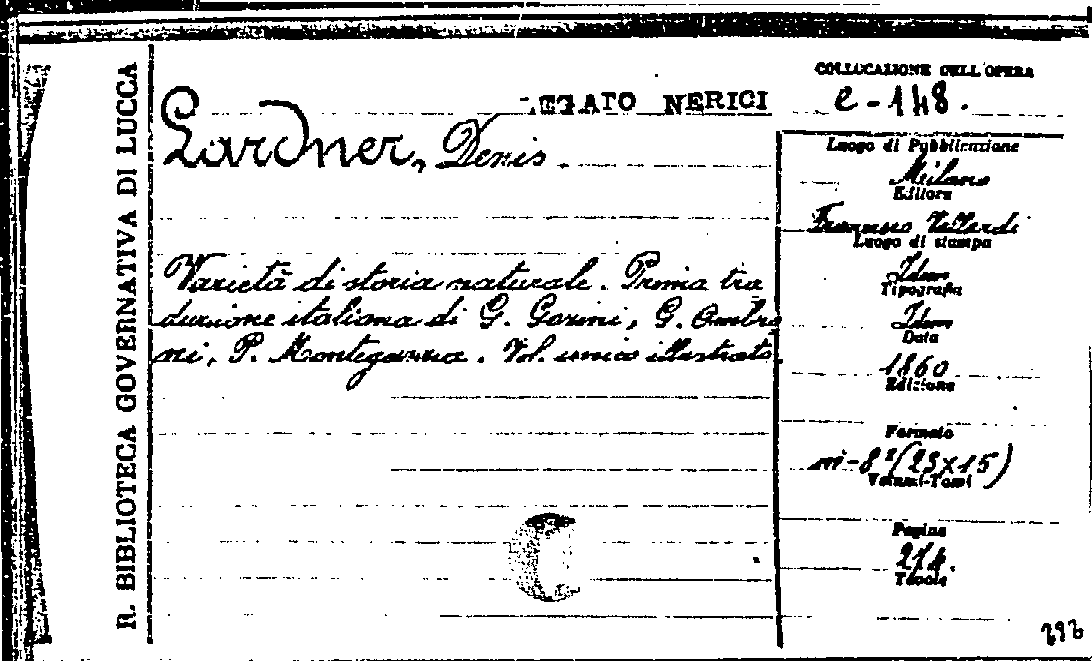 R. BIBLIOTECA GOVERNATIVA DI LUCCA
LEGATO NERICI
COLLOCAZIONE DELL'OPERA
e-148.
Lardner, Denis.
Luogo di Pubblicazione
Milano
Editore
Francesco Vallardi
Luogo di stampa
Idem
Tipografia
Idem
Data
1860
Edizione
Formato
in-8º (23×15)
Volumi-Tomi
Pagine
214.
Tavole
Varietà di storia naturale. Prima tra
duzione italiana di G. Gorini, G. Ambro
ni, P. Mantegazza. Vol. unico illustrato.